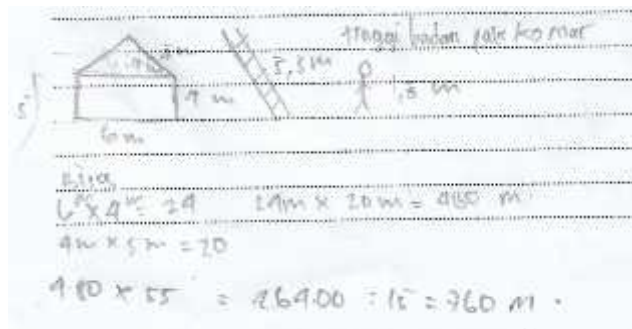 tinggi badan pak komar
5,5 m
4 m
5
6 m
6 m x 4 m = 24 24m x 20 m = 480 m
4 m x 5 m = 20
480 x 55 = 26400 : 15 = 760 m .